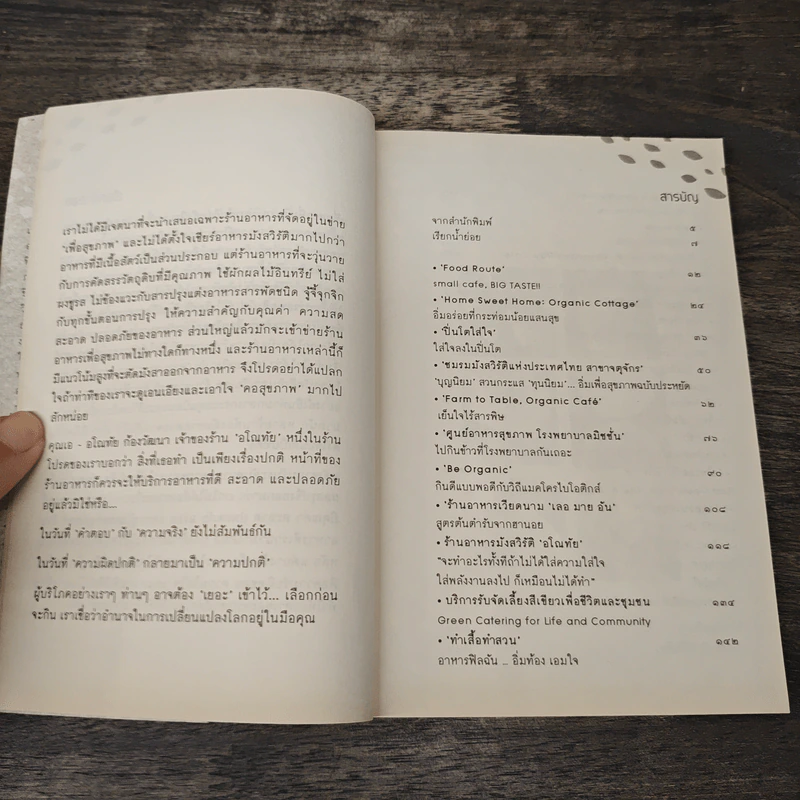 เราไม่ได้มีเจตนาที่จะนำเสนอเฉพาะร้านอาหารที่จัดอยู่ในข่าย
"เพื่อสุขภาพ" และไม่ได้ตั้งใจเชียร์อาหารมังสวิรัติมากไปกว่า
อาหารที่มีเนื้อสัตว์เป็นส่วนประกอบ แต่ร้านอาหารที่จะวุ่นวาย
กับการคัดสรรวัตถุดิบที่มีคุณภาพ ใช้ผักผลไม้อินทรีย์ ไม่ใส่
ผงชูรส ไม่ข้องแวะกับสารปรุงแต่งอาหารสารพัดชนิด จู้จี้จุกจิก
กับทุกขั้นตอนการปรุง ให้ความสำคัญกับคุณค่า ความสด
สะอาด ปลอดภัยของอาหาร ส่วนใหญ่แล้วมักจะเข้าข่ายร้าน
อาหารเพื่อสุขภาพไม่ทางใดก็ทางหนึ่ง และร้านอาหารเหล่านี้ก็
มีแนวโน้มสูงที่จะตัดมังสาออกจากอาหาร จึงโปรดอย่าได้แปลก
ใจถ้าท่าทีของเราจะดูเอนเอียงและเอาใจ "คอสุขภาพ" มากไป
สักหน่อย
คุณเอ - อโณทัย ก้องวัฒนา เจ้าของร้าน "อโณทัย" หนึ่งในร้าน
โปรดของเราบอกว่า สิ่งที่เธอทำ เป็นเพียงเรื่องปกติ หน้าที่ของ
ร้านอาหารก็ควรจะให้บริการอาหารที่ดี สะอาด และปลอดภัย
อยู่แล้วมิใช่หรือ...
ในวันที่ "คำตอบ" กับ "ความจริง" ยังไม่สัมพันธ์กัน
ในวันที่ "ความผิดปกติ" กลายมาเป็น "ความปกติ"
ผู้บริโภคอย่างเราๆ ท่านๆ อาจต้อง "เยอะ" เข้าไว้... เลือกก่อน
จะกิน เราเชื่อว่าอำนาจในการเปลี่ยนแปลงโลกอยู่ในมือคุณ
สารบัญ
จากสำนักพิมพ์ ๕
เรียกน้ำย่อย ๗
• 'Food Route' ๑๒
small cafe, BIG TASTE!!
• 'Home Sweet Home: Organic Cottage' ๒๔
อิ่มอร่อยที่กระท่อมน้อยแสนสุข
• 'ปิ่นโตใส่ใจ' ๓๖
ใส่ใจลงในปิ่นโต
• 'ชมรมมังสวิรัติแห่งประเทศไทย สาขาจตุจักร' ๕๐
'บุญนิยม' สวนกระแส 'ทุนนิยม'... อิ่มเพื่อสุขภาพฉบับประหยัด
• 'Farm to Table, Organic Café' ๖๒
เย็นใจไร้สารพิษ
• 'ศูนย์อาหารสุขภาพ โรงพยาบาลมิชชั่น' ๗๖
ไปกินข้าวที่โรงพยาบาลกันเถอะ
• 'Be Organic' ๙๐
กินดีแบบพอดีกับวิถีแมคโครไบโอติกส์
• 'ร้านอาหารเวียดนาม 'เลอ มาย อัน' ๑๐๔
สูตรต้นตำรับจากฮานอย
• ร้านอาหารมังสวิรัติ 'อโณทัย' ๑๑๘
"จะทำอะไรทั้งทีถ้าไม่ได้ใส่ความใส่ใจ
ใส่พลังงานลงไป ก็เหมือนไม่ได้ทำ"
• บริการรับจัดเลี้ยงสีเขียวเพื่อชีวิตและชุมชน ๑๓๔
Green Catering for Life and Community
• 'ทำเสื้อทำสวน' ๑๔๒
อาหารฟิลฉัน ... อิ่มท้อง เอมใจ